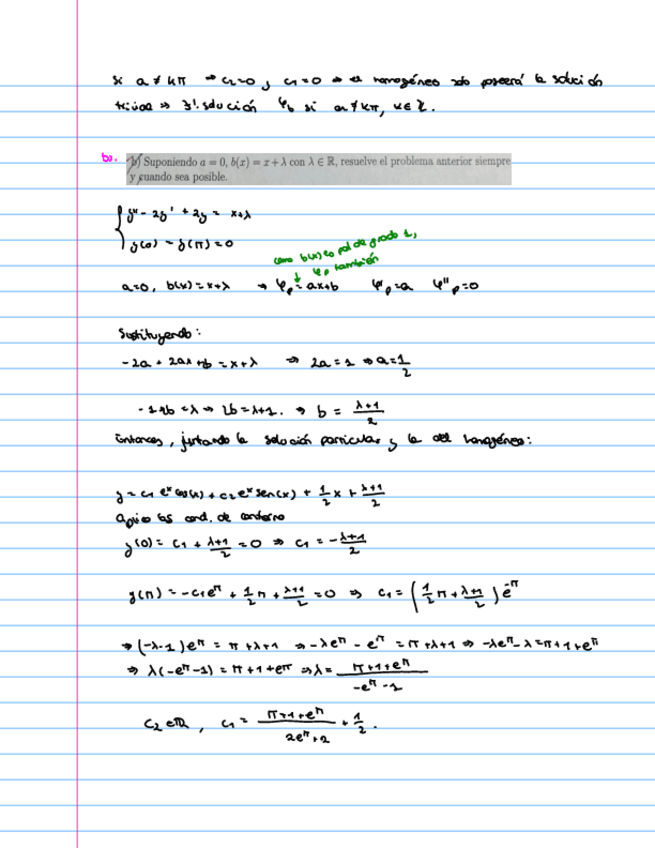 si a ≠ kπ ⇒ c₂=0 y c₁=0 ⇒ el homogéneo solo poseerá la solución
trivial ⇒ ∃! solución φ_b si a ≠ kπ, k∈ℤ.
b). b) Suponiendo a = 0, b(x) = x + λ con λ ∈ ℝ, resuelve el problema anterior siempre
y cuando sea posible.
{ y'' - 2y' + 2y = x+λ
y(0) = y(π) = 0
como b(x) es pol de grado 1,
φ_p también
a=0, b(x)=x+λ → φ_p = ax+b φ'_p=a φ''_p=0
Sustituyendo:
-2a + 2ax + b = x+λ ⇒ 2a = 1 ⇒ a = 1/2
-1+2b = λ ⇒ 2b = λ+1. ⇒ b = (λ+1)/2
Entonces, juntando la solución particular y la del homogéneo:
y = c₁ eˣ cos(x) + c₂ eˣ sen(x) + 1/2 x + (λ+1)/2
Aplico las cond. de contorno
y(0) = c₁ + (λ+1)/2 = 0 ⇒ c₁ = -(λ+1)/2
y(π) = -c₁e^π + 1/2 π + (λ+1)/2 = 0 ⇒ c₁ = (1/2 π + (λ+1)/2) e^-π
⇒ (-λ-1)e^π = π+λ+1 ⇒ -λe^π - e^π = π+λ+1 ⇒ -λe^π-λ = π+1+e^π
⇒ λ(-e^π-1) = π+1+e^π ⇒ λ = (π+1+e^π)/(-e^π-1)
c₂ ∈ ℝ, c₁ = (π+1+e^π)/(2e^π+2) + 1/2.